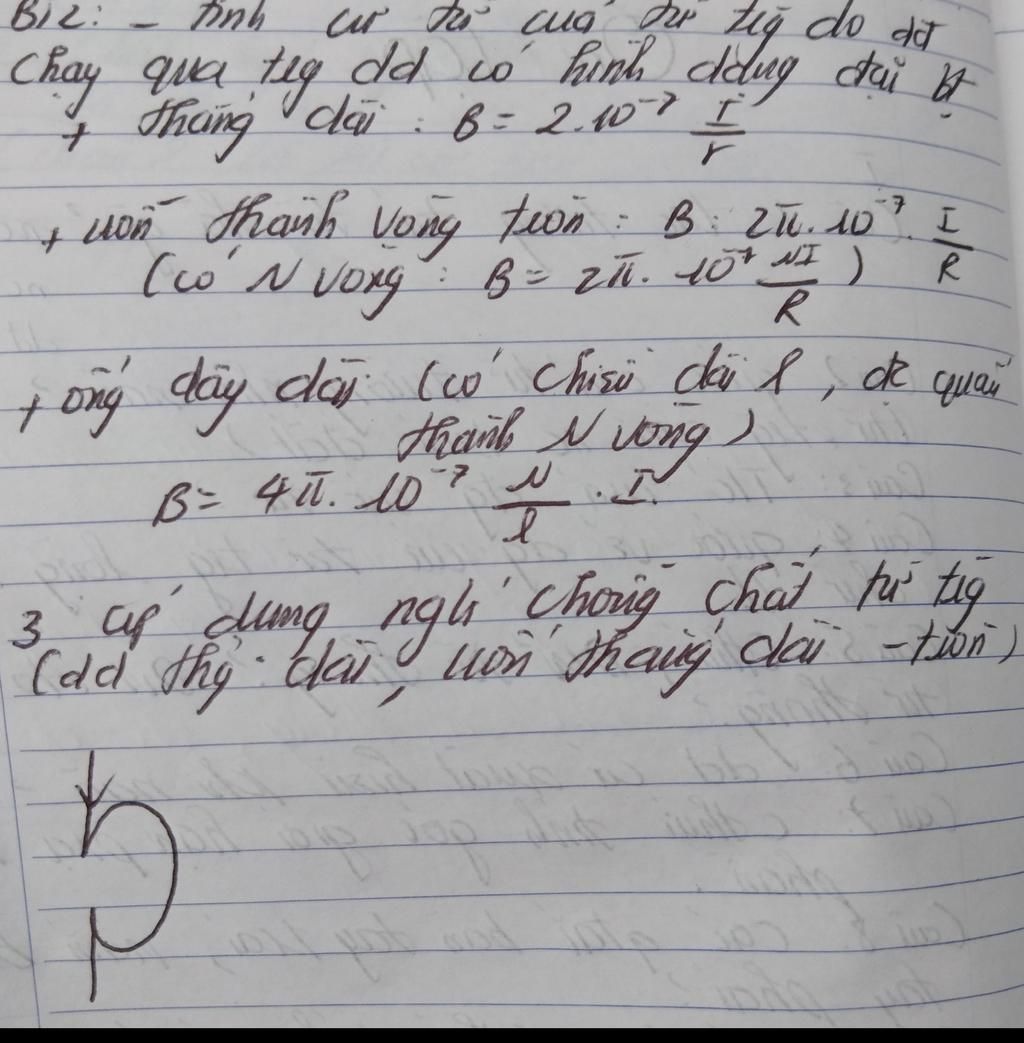 B12: - Tính cư từ của từ tg̃ do dđ
Chạy qua tg dd có hình dạng đại bt
+ thẳng dài : B = 2.10⁻⁷ I/r
+ uốn thành vòng tròn : B : 2π. 10⁻⁷. I/R
(có N vòng : B = 2π. 10⁻⁷ NI/R )
+ ống dây dài (có chiều dài l, đc quấn
thành N vòng)
B = 4π. 10⁻⁷ N/l . I.
3 áp dụng nglí chồng chất từ tg̃
(dd thg dài, uốn thẳng dài - tròn)